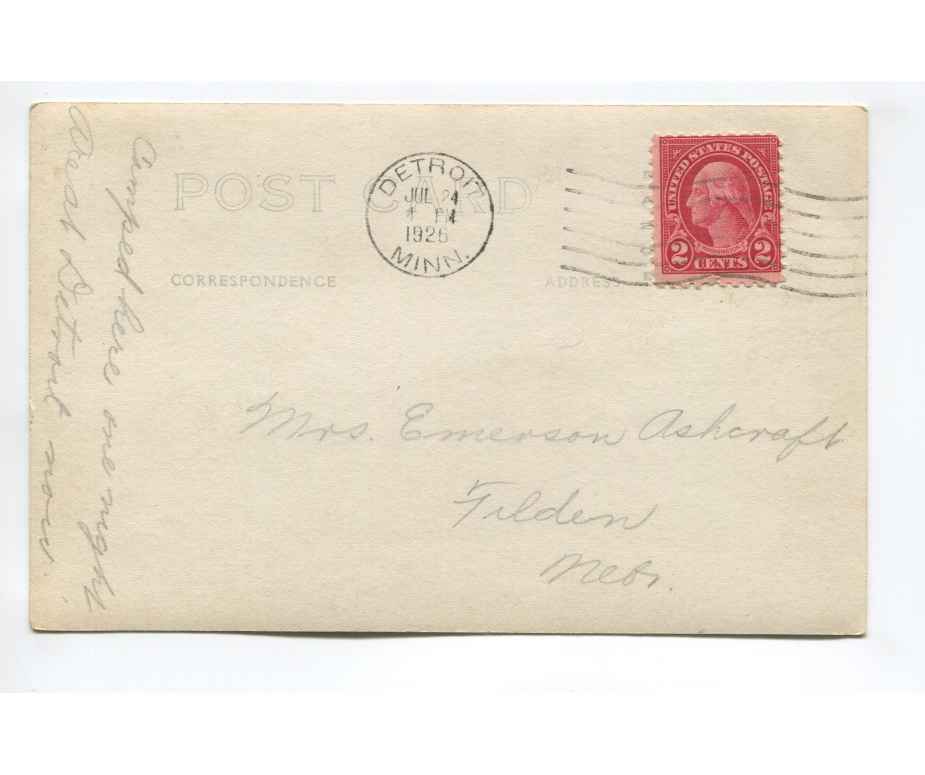 POST CARD
CORRESPONDENCE
ADDRESS
DETROIT
JUL 24
1926
MINN.
UNITED STATES POSTAGE
2 CENTS 2
Camped here one night
We at Detroit now.
Mrs. Emerson Ashcraft
Tilden
Nebr.